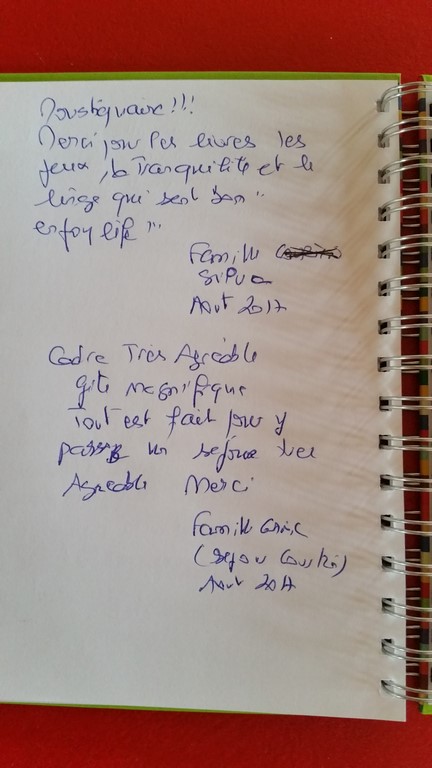 Moustiquaire !!!
Merci pour les livres les
jeux, la Tranquilité et le
linge qui sent bon "
enjoy life "
Famille
Août 2017
Cadre Très Agréable
gite magnifique
Tout est fait pour y
passer un séjour tres
Agréable Merci
Famille
(séjour
Août 2017